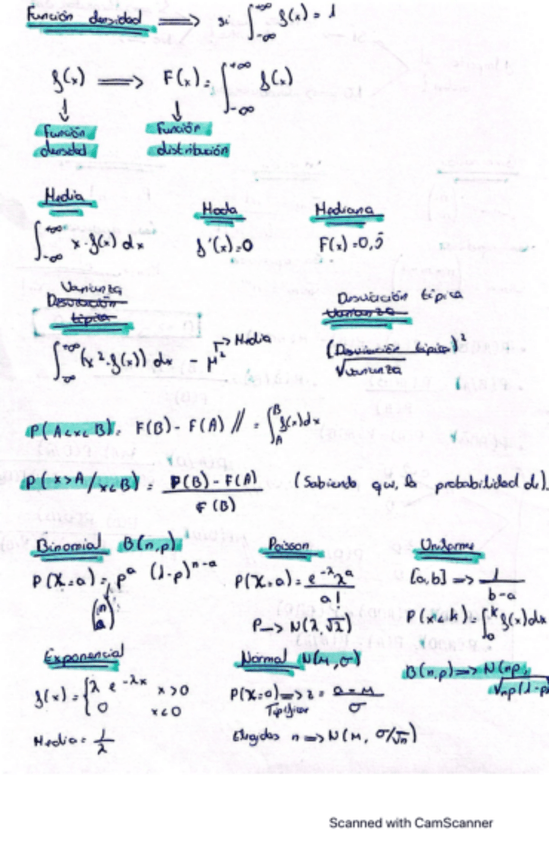 Función densidad ⟹ si ∫_{-∞}^{+∞} f(x) = 1
f(x) ⟹ F(x) = ∫_{-∞}^{+∞} f(x)
↓ ↓
Función densidad
Función distribución
Media
∫_{-∞}^{+∞} x·f(x) dx
Moda
f'(x)=0
Mediana
F(x)=0,5
Varianza
Desviación típica
∫_{-∞}^{+∞} (x²·f(x)) dx - μ² → Media
Desviación típica
Varianza
(Desviación típica)²
√varianza
P(A<x<B) = F(B) - F(A) // = ∫_A^B f(x)dx
P(x>A/x≤B) = P(B) - F(A) / F(B) (Sabiendo que, la probabilidad de).
Binomial B(n,p)
P(X=a) = p^a (1-p)^{n-a}
(n a)
Poisson
P(X=a) = e^{-λ}λ^a / a!
P→ N(λ,√λ)
Uniforme
[a,b] ⟹ 1 / b-a
P(x<k) = ∫_0^k f(x)dx
B(n,p) ⟹ N(np, √np(1-p)
Exponencial
f(x) = { λ e^{-λx} x>0
0 x<0
Media = 1/λ
Normal N(μ,σ)
P(X=a) ⟹ z = a-μ / σ
Tipificar
Elegidos n ⟹ N(μ, σ/√n)
Scanned with CamScanner